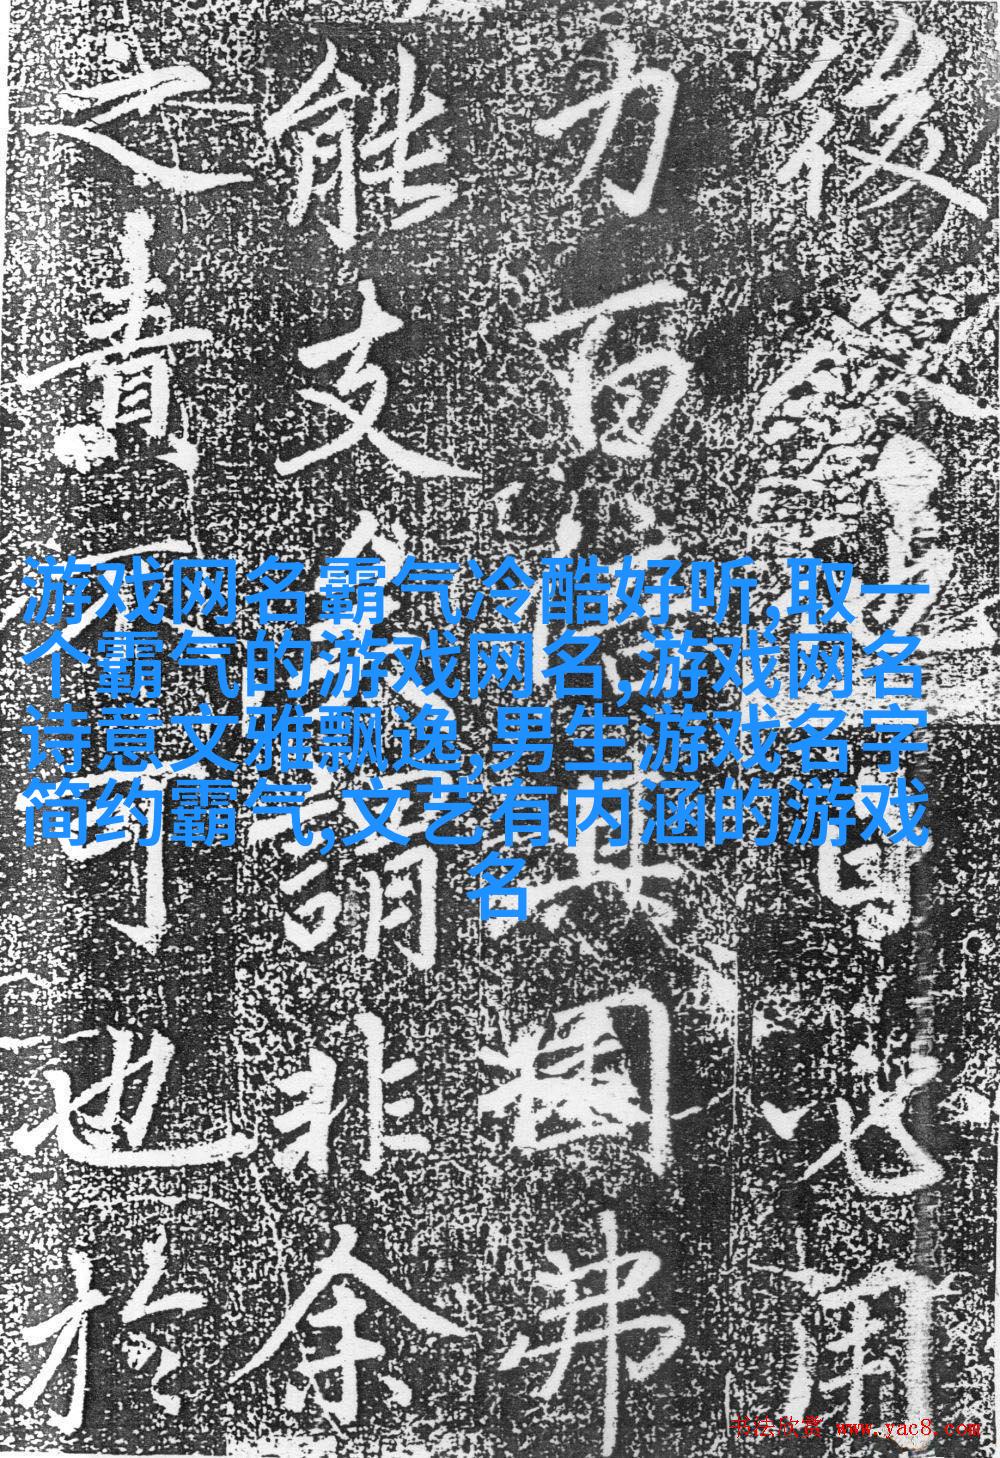 後必用
力百倍其國弗
能支矣謂非余
之責不可也於
游戏网名霸气冷酷好听,取一
个霸气的游戏网名,游戏网名
诗意文雅飘逸,男生游戏名字
简约霸气,文艺有内涵的游戏
名
书法欣赏 www.yac8.com